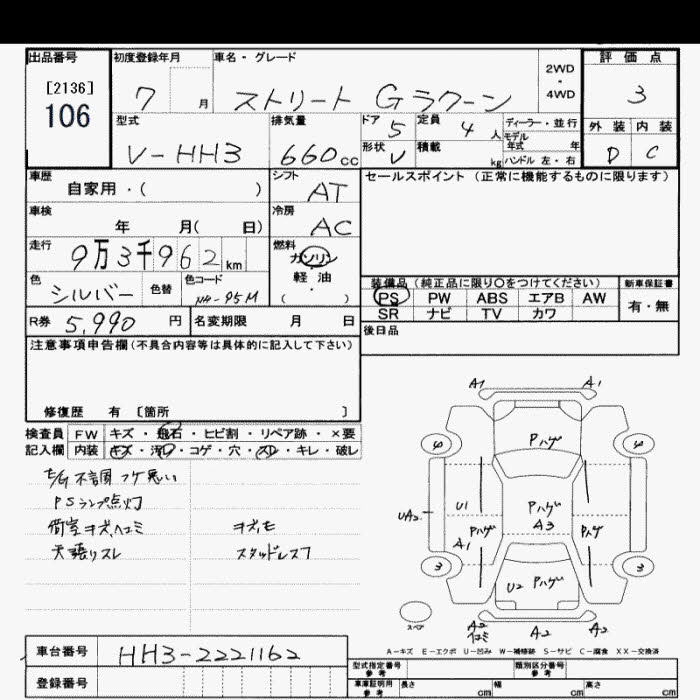 出品番号
[2136]
106
初度登録年月
7 月
車名・グレード
ストリート Gラクーン
2WD
・
4WD
評価点
3
型式
V-HH3
排気量
660cc
ドア 5
定員 4 人
ディーラー・並行
モデル年式 年
形状 V
積載 kg
ハンドル 左・右
外装 内装
D C
車歴
自家用・( )
シフト AT
セールスポイント(正常に機能するものに限ります)
車検
年 月( 日)
冷房 AC
走行
9万3千962km
燃料
ガソリン
軽油
( ・ )
色 シルバー
色替
色コード NH-95M
装備品(純正品に限り○をつけてください)
新車保証書
PS PW ABS エアB AW
有・無
SR ナビ TV カワ
R券 5,990円
名変期限 月 日
後日品
注意事項申告欄(不具合内容等は具体的に記入して下さい)
修復歴 有 〔箇所 〕
検査員記入欄
FW キズ・飛石・ヒビ割・リペア跡・×要
内装 キズ・汚レ・コゲ・穴・スレ・キレ・破レ
不調 フケ悪い
PSランプ点灯
荷室キズ、ヘコミ
天張りスレ
スタッドレス
A1 A1
Pハゲ
U1
Pハゲ
A1
Pハゲ
A3
Pハゲ
UA2
3
3
U2 Pハゲ
スペア
A2
A2
A2
A-キズ E-エクボ U-凹み W-補修跡 S-サビ C-腐食 XX-交換済
車台番号 HH3-2221162
登録番号
型式指定番号 参考
類別区分番号 参考
車庫証明用 参考
長さ cm
幅 cm
高さ cm